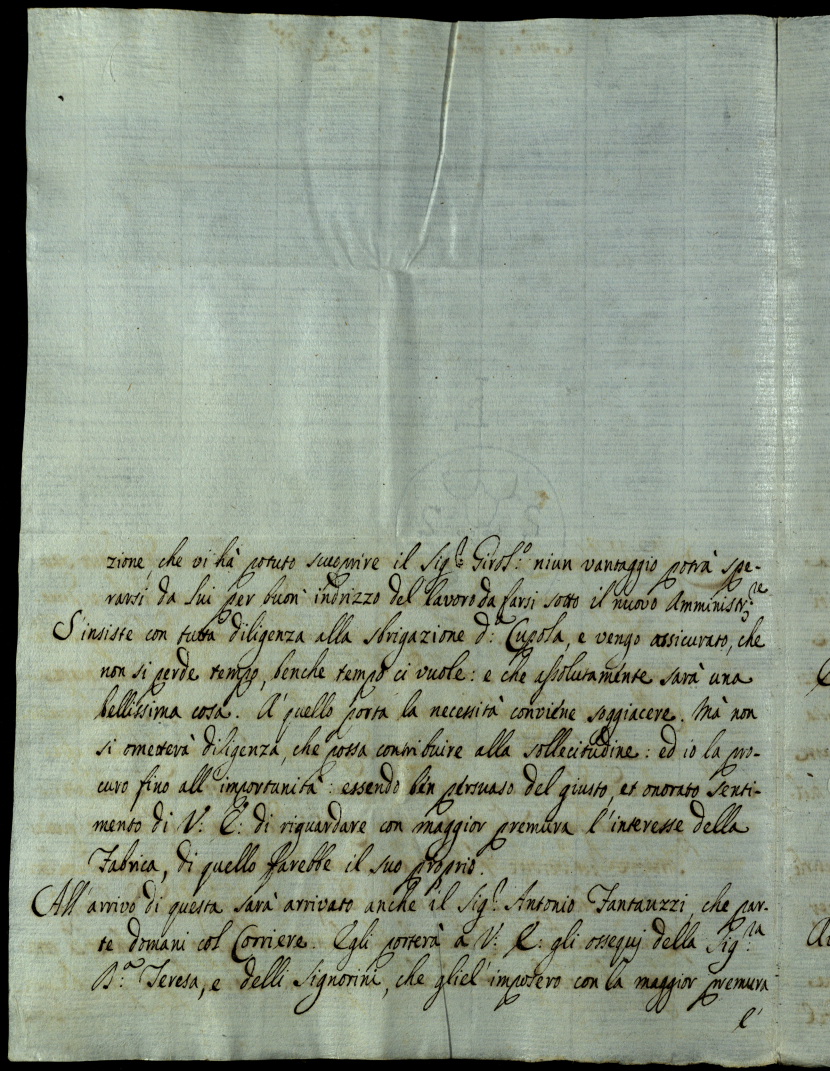 zione, che vi hà potuto scuoprire il Sig.r Girol.o niun vantaggio potrà spe-
rarsi da lui per buon indrizzo del lavoro da farsi sotto il nuovo Amministr.re
S'insiste con tutta diligenza alla sbrigazione d.a Cupola, e vengo assicurato, che
non si perde tempo, benche tempo ci vuole: e che assolutamente sarà una
bellissima cosa. A' quello porta la necessità conviene soggiacere. Mà non
si ometterà diligenza, che possa contribuire alla sollecitudine: ed io la pro-
curo fino all'importunità: essendo ben persuaso del giusto, et onorato senti-
mento di V: E: di riguardare con maggior premura l'interesse della
Fabrica, di quello farebbe il suo proprio.
All'arrivo di questa sarà arrivato anche il Sig.r Antonio Fantauzzi, che par-
te domani col Corriere. Egli porterà a V: E: gli ossequj della Sig.ra
B.a Teresa, e delli Signorini, che gliel'imposero con la maggior premura
e'